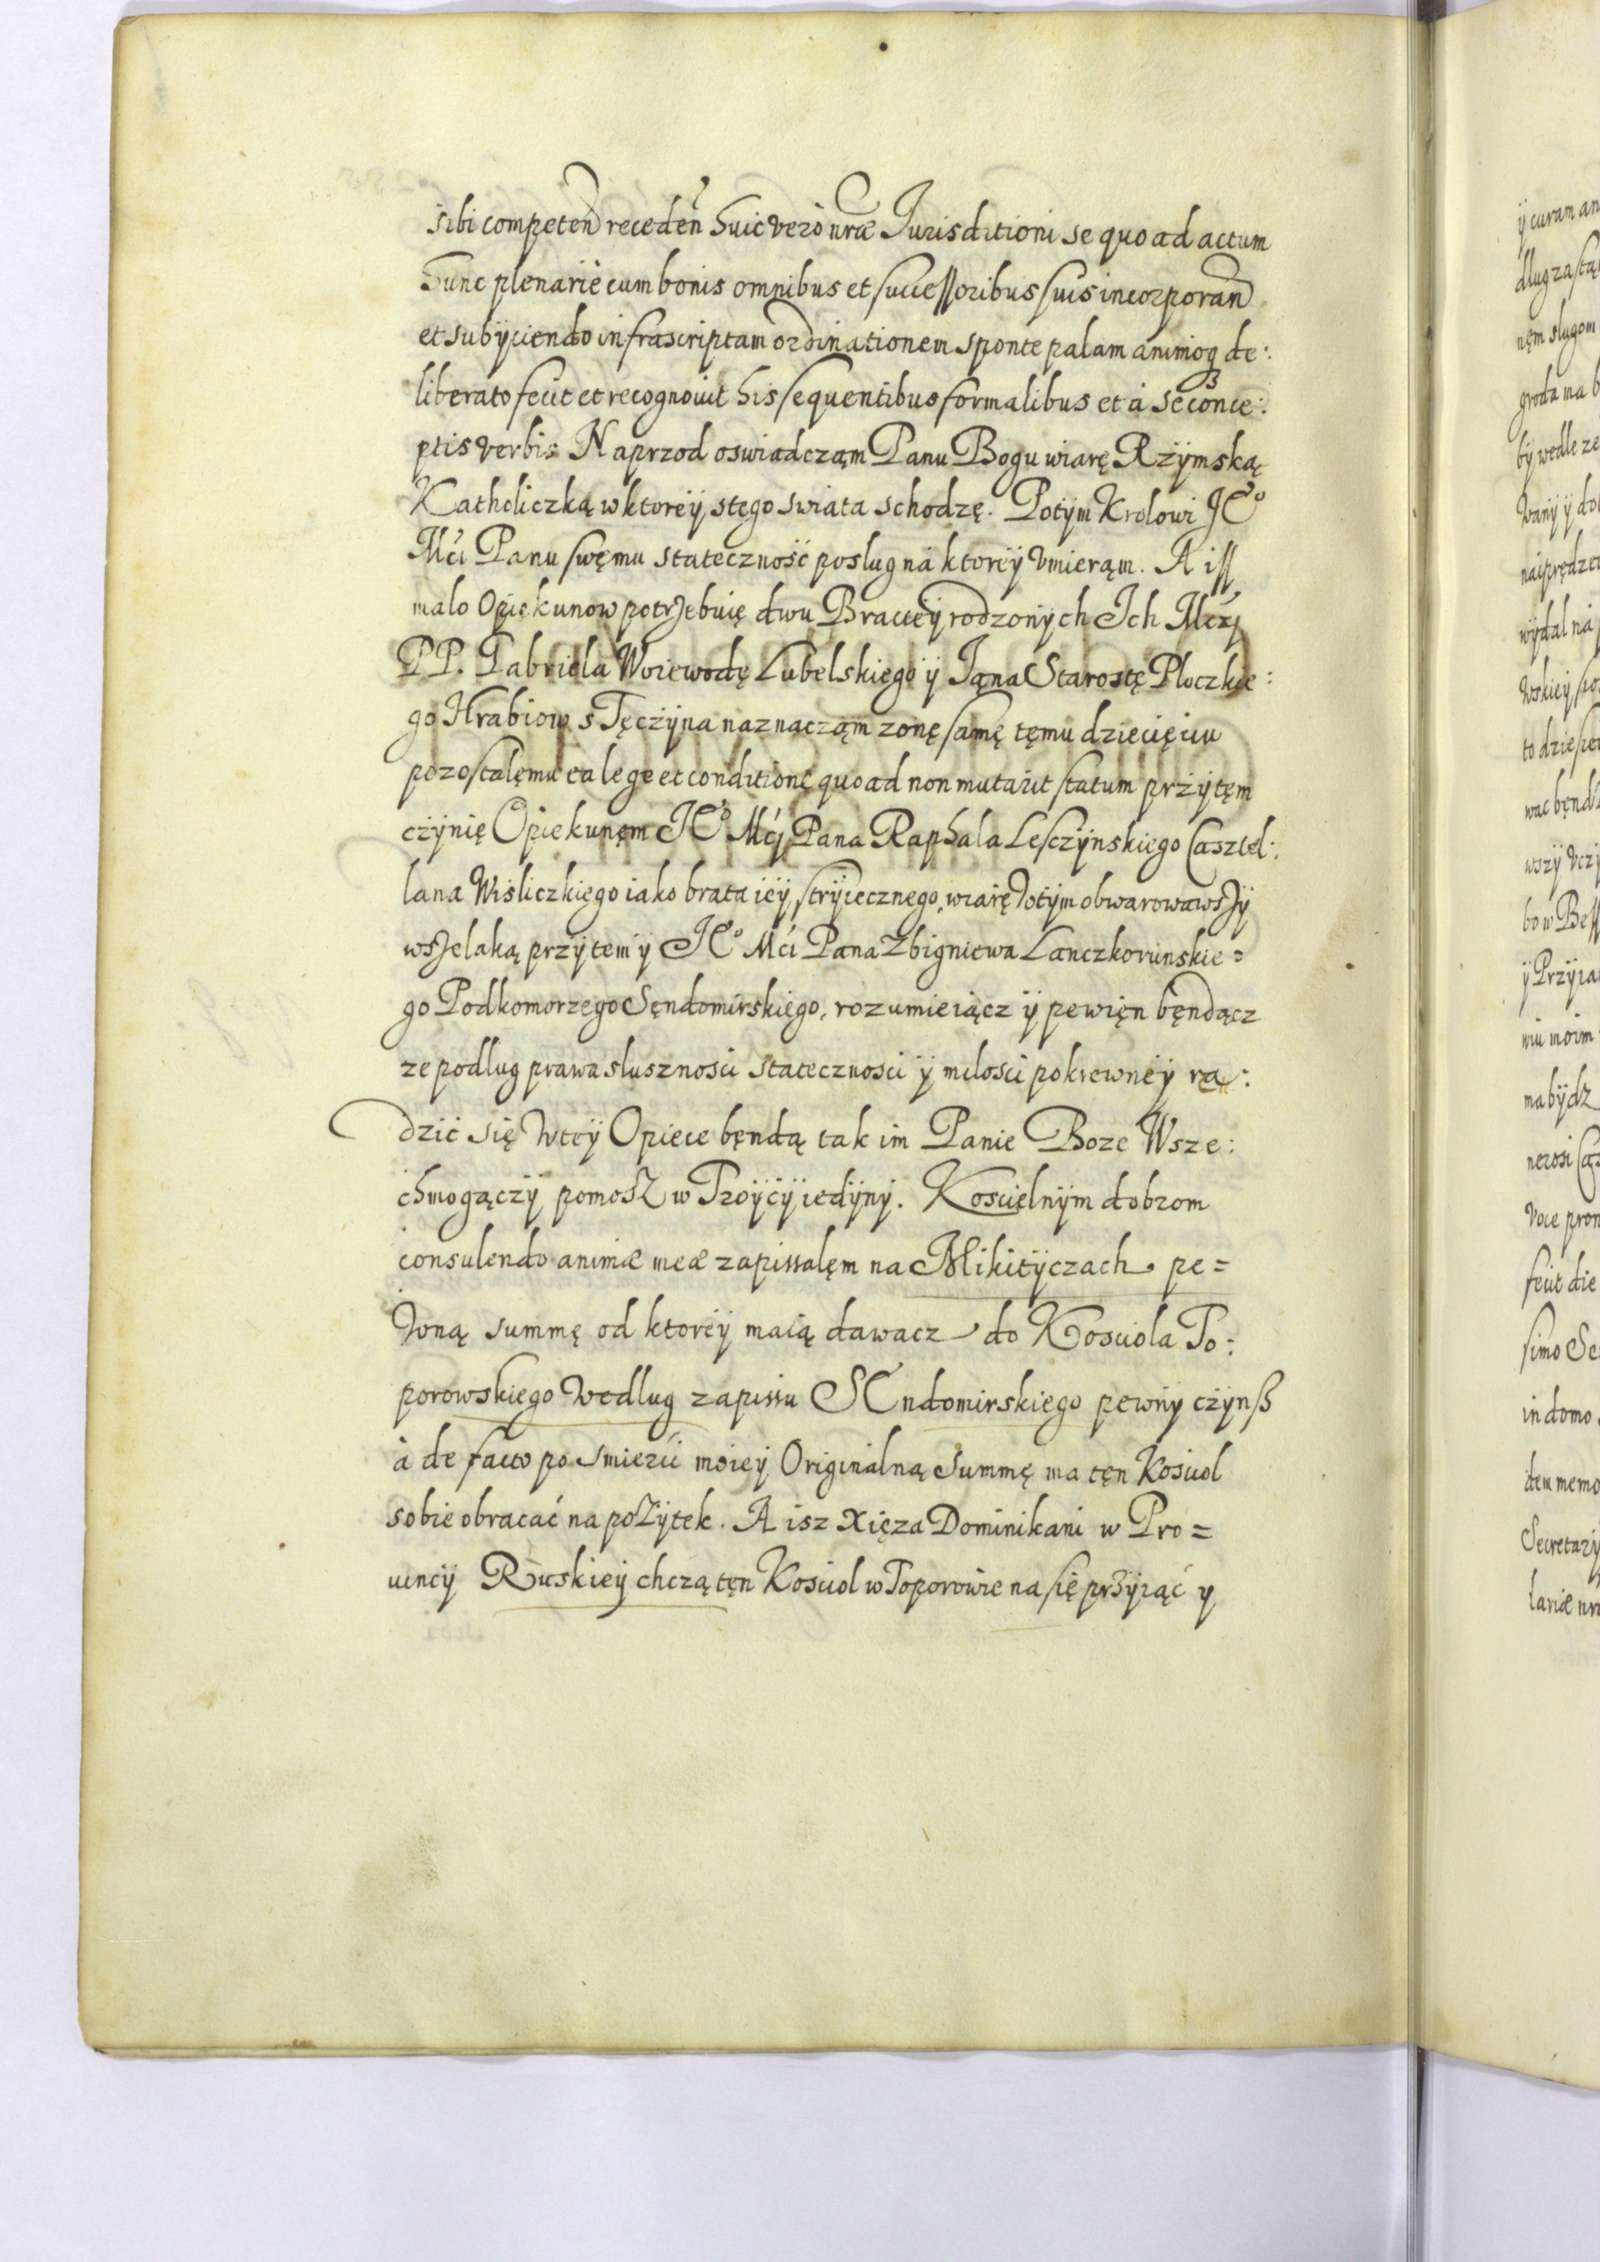 sibi competen receden huic vero nrae Jurisditioni se quo ad actum
hunc plenariè cum bonis omnibus et successoribus suis incorporan
et subÿciendo infrascriptam ordinationem sponte palam animoq de:
liberato fecit et recognovit his sequentibus formalibus et à se conce:
ptis verbis Naprzod oswiadcząm Panu Bogu wiarę Rzÿmską
Katholiczką w ktoreÿ stego swiata schodzę. Potÿm Krolowi JE°
Mći Panu swęmu stateczność poslug ná ktoreÿ Vmierąm. A iss
malo Opiekunow potrzebuię dwu Bracieÿ rodzonÿch Ich Mczi
PP. Gabriela Woiewodę Lubelskiego ÿ Jąna Starostę Ploczkie:
go Hrabiow s Tęczÿna naznacząm zonę samę tęmu dziecięciu
pozostalęmu ea lege et conditione quo ad non mutarit statum przÿtęm
czÿnię Opiekunęm JE° Mći Pana Raphala Lesczÿnskiego Casztel:
lana Wisliczkiego iako brata ieÿ strÿiecznego, wiarę otÿm obwarowawszÿ
wszelaką przÿtem ÿ JE° Mći Pana Zbigniewa Lanczkorunskie=
go Podkomorzego Sęndomirskiego, rozumieiącz ÿ pewięn będącz
ze podlug prawa slusznosci statecznosci ÿ milosci pokrewneÿ ra:
dzić się wteÿ Opiece będą tak im Panie Boze Wsze:
chmogączÿ pomosz w Troÿcÿ iedÿnÿ. Koscielnÿm dobrom
consulendo animae meae zapissalęm na Mikitÿczach pe=
wną summę od ktoreÿ maią dawacz do Kosciola To:
porowskiego wedlug zapissu SEndomirskiego pewnÿ czÿnsz
à de facto po smierci moieÿ Originalną summę ma tęn Kosciol
sobie obracać na pożÿtek. A isz Xięza Dominikani w Pro=
uincÿ Ruskieÿ chczą tęn Kosciol w Toporowie na się przÿiąć ÿ